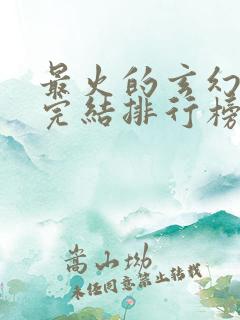 最火的玄幻
完结排行榜
嵩山坳
未经同意禁止转载